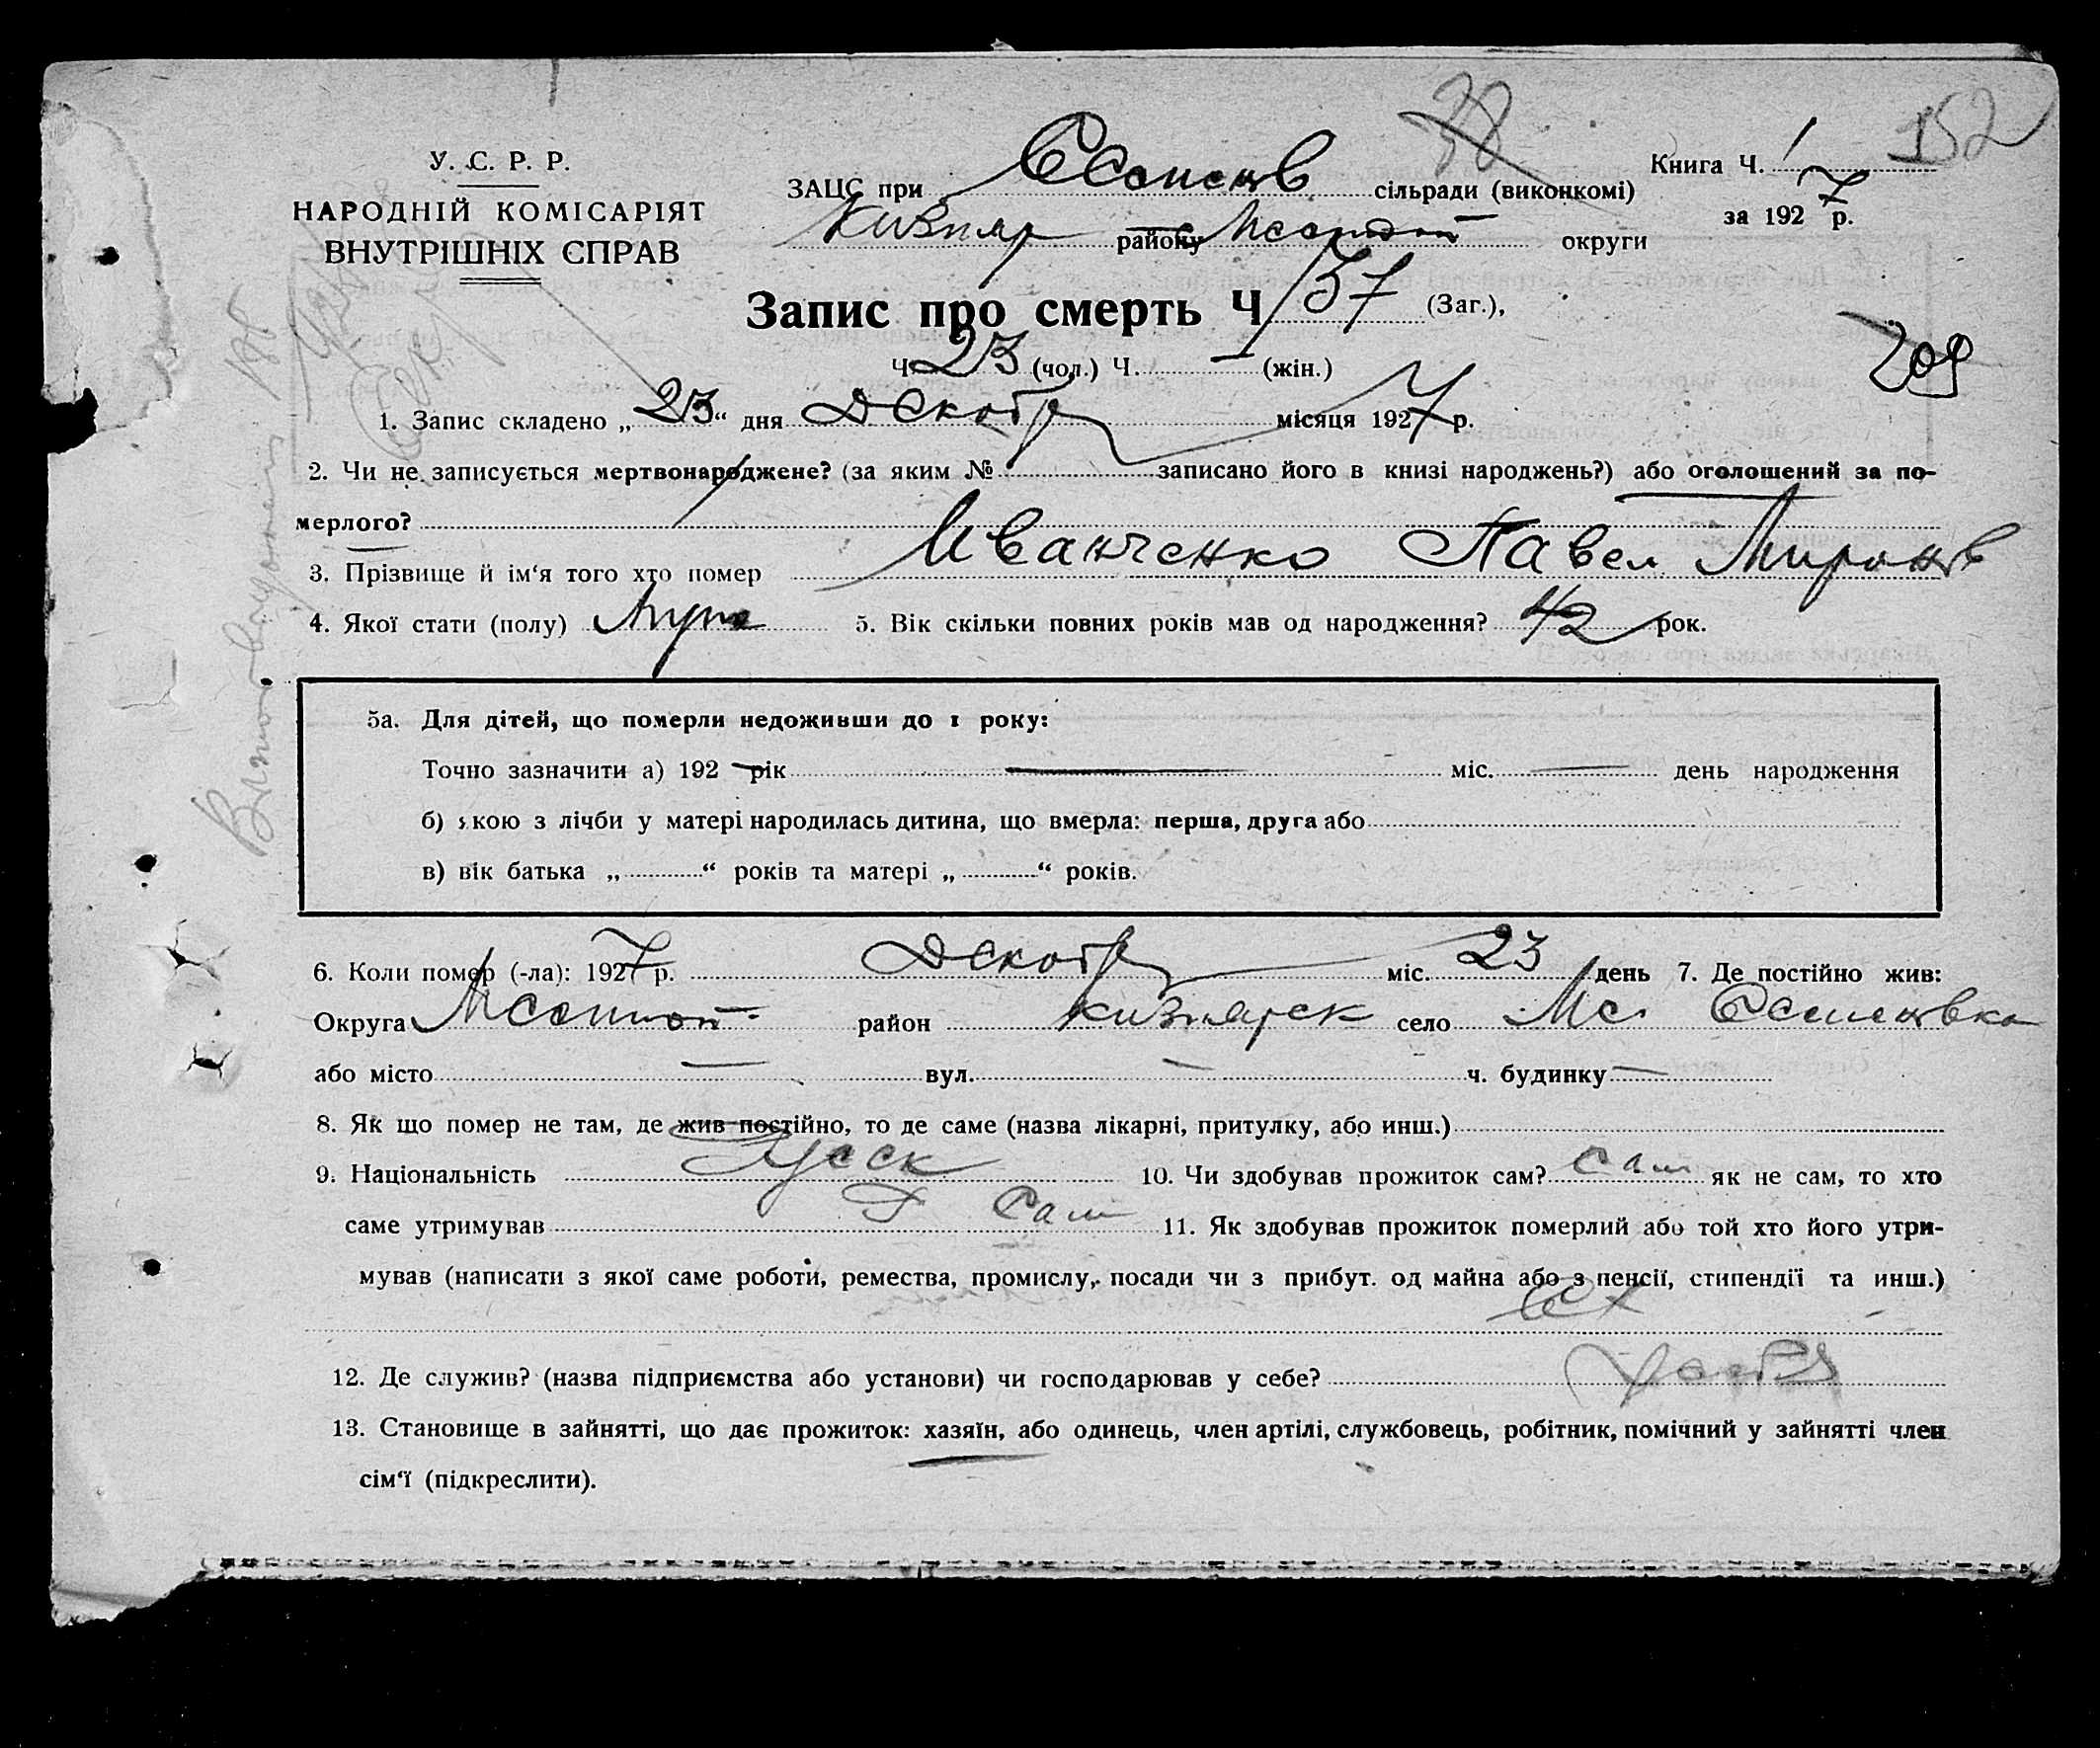 38
152
У. С. Р. Р.
НАРОДНІЙ КОМІСАРІЯТ
ВНУТРІШНІХ СПРАВ
ЗАЦС при сільради (виконкомі)
району округи
Книга Ч. 1
за 1927 р.
Запис про смерть Ч 37 (Заг.),
Ч 23 (чол.) Ч. — (жін.)
209
1. Запис складено „23“ дня Декабр місяця 1927 р.
2. Чи не записується мертвонароджене? (за яким № записано його в книзі народжень?) або оголошений за по-
мерлого?
3. Прізвище й ім‘я того хто помер Иванченко Павел Миронов
4. Якої стати (полу) Муж 5. Вік скільки повних років мав од народження? 42 рок.
5а. Для дітей, що померли недоживши до 1 року:
Точно зазначити а) 192 — рік — міс. — день народження
б) якою з лічби у матері народилась дитина, що вмерла: перша, друга або
в) вік батька „ “ років та матері „ “ років.
6. Коли помер (-ла): 1927 р. Декабр міс. 23 день 7. Де постійно жив:
Округа район село
або місто — вул. — ч. будинку —
8. Як що помер не там, де жив постійно, то де саме (назва лікарні, притулку, або инш.)
9. Національність Русск 10. Чи здобував прожиток сам? Сам як не сам, то хто
саме утримував Сам 11. Як здобував прожиток померлий або той хто його утри-
мував (написати з якої саме роботи, ремества, промислу, посади чи з прибут. од майна або з пенсії, стипендії та инш.)
12. Де служив? (назва підприємства або установи) чи господарював у себе?
13. Становище в зайнятті, що дає прожиток: хазяїн, або одинець, член артілі, службовець, робітник, помічний у зайнятті член
сім‘ї (підкреслити).